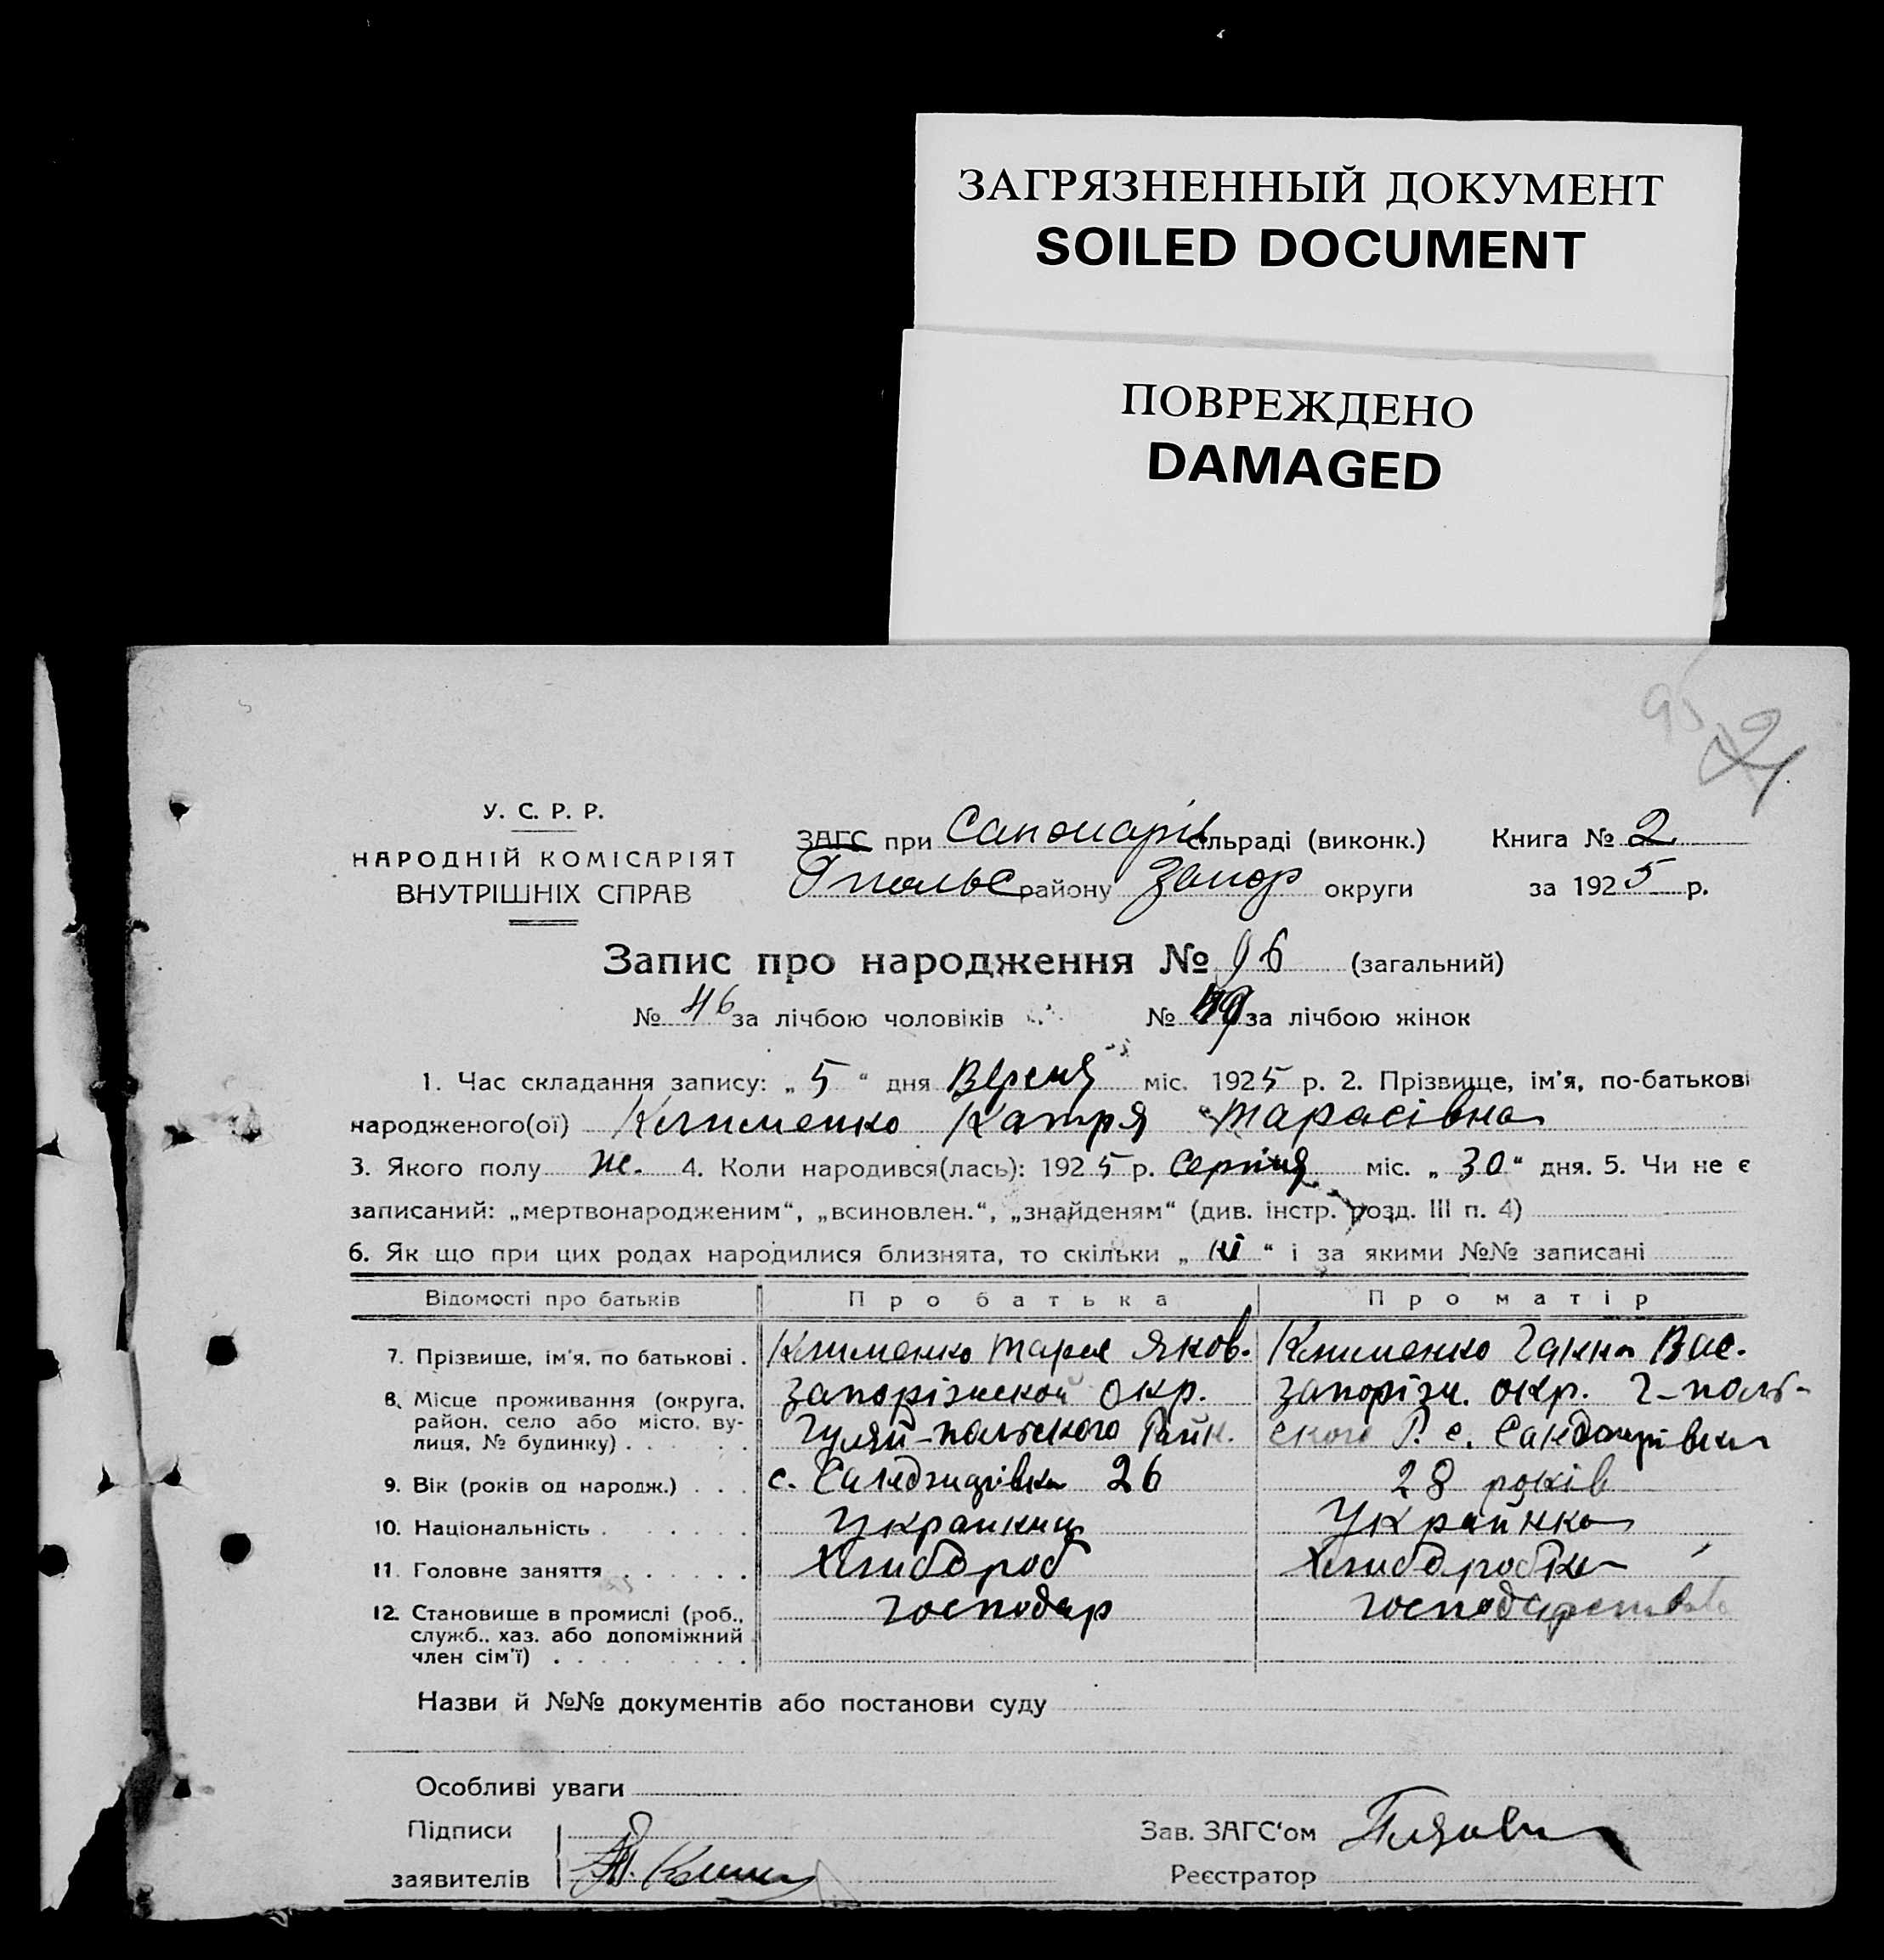 ЗАГРЯЗНЕННЫЙ ДОКУМЕНТ
SOILED DOCUMENT
ПОВРЕЖДЕНО
DAMAGED
У. С. Р. Р.
НАРОДНІЙ КОМІСАРІЯТ
ВНУТРІШНІХ СПРАВ
ЗАГС при сільраді (виконк.) Книга № 2
району Запор округи за 1925 р.
Запис про народження № 96 (загальний)
№ 46 за лічбою чоловіків № за лічбою жінок
1. Час складання запису: „ 5 “ дня Вересня міс. 1925 р. 2. Прізвище, ім’я, по-батькові
народженого(ої) Клименко Катря Тарасівна
3. Якого полу ж. 4. Коли народився(лась): 1925 р. Серпня міс. „ 30 “ дня. 5. Чи не є
записаний: „мертвонародженим“, „всиновлен.“, „знайденям“ (див. інстр. розд. III п. 4)
6. Як що при цих родах народилися близнята, то скільки „ ні “ і за якими №№ записані
Відомості про батьків Про батька Про матір
7. Прізвище, ім’я, по батькові . Клименко Тарас Яков. Клименко Ганна Вас.
8. Місце проживання (округа, Запоріжської окр. Запоріж. окр. Г-поль-
район, село або місто, ву-
лиця, № будинку) . . . . . Гуляй-польского Райн. ского Р. с.
9. Вік (років од народж.) . . . с. 26 28 років
10. Національність . . . . . . . Украинець Украйнка
11. Головне заняття . . . . . . Хлибороб Хлиборобка
12. Становище в промислі (роб., господар
служб., хаз. або допоміжний
член сім’ї) . . . . . . . . .
Назви й №№ документів або постанови суду
Особливі уваги
Підписи Зав. ЗАГС‘ом
заявителів Реєстратор